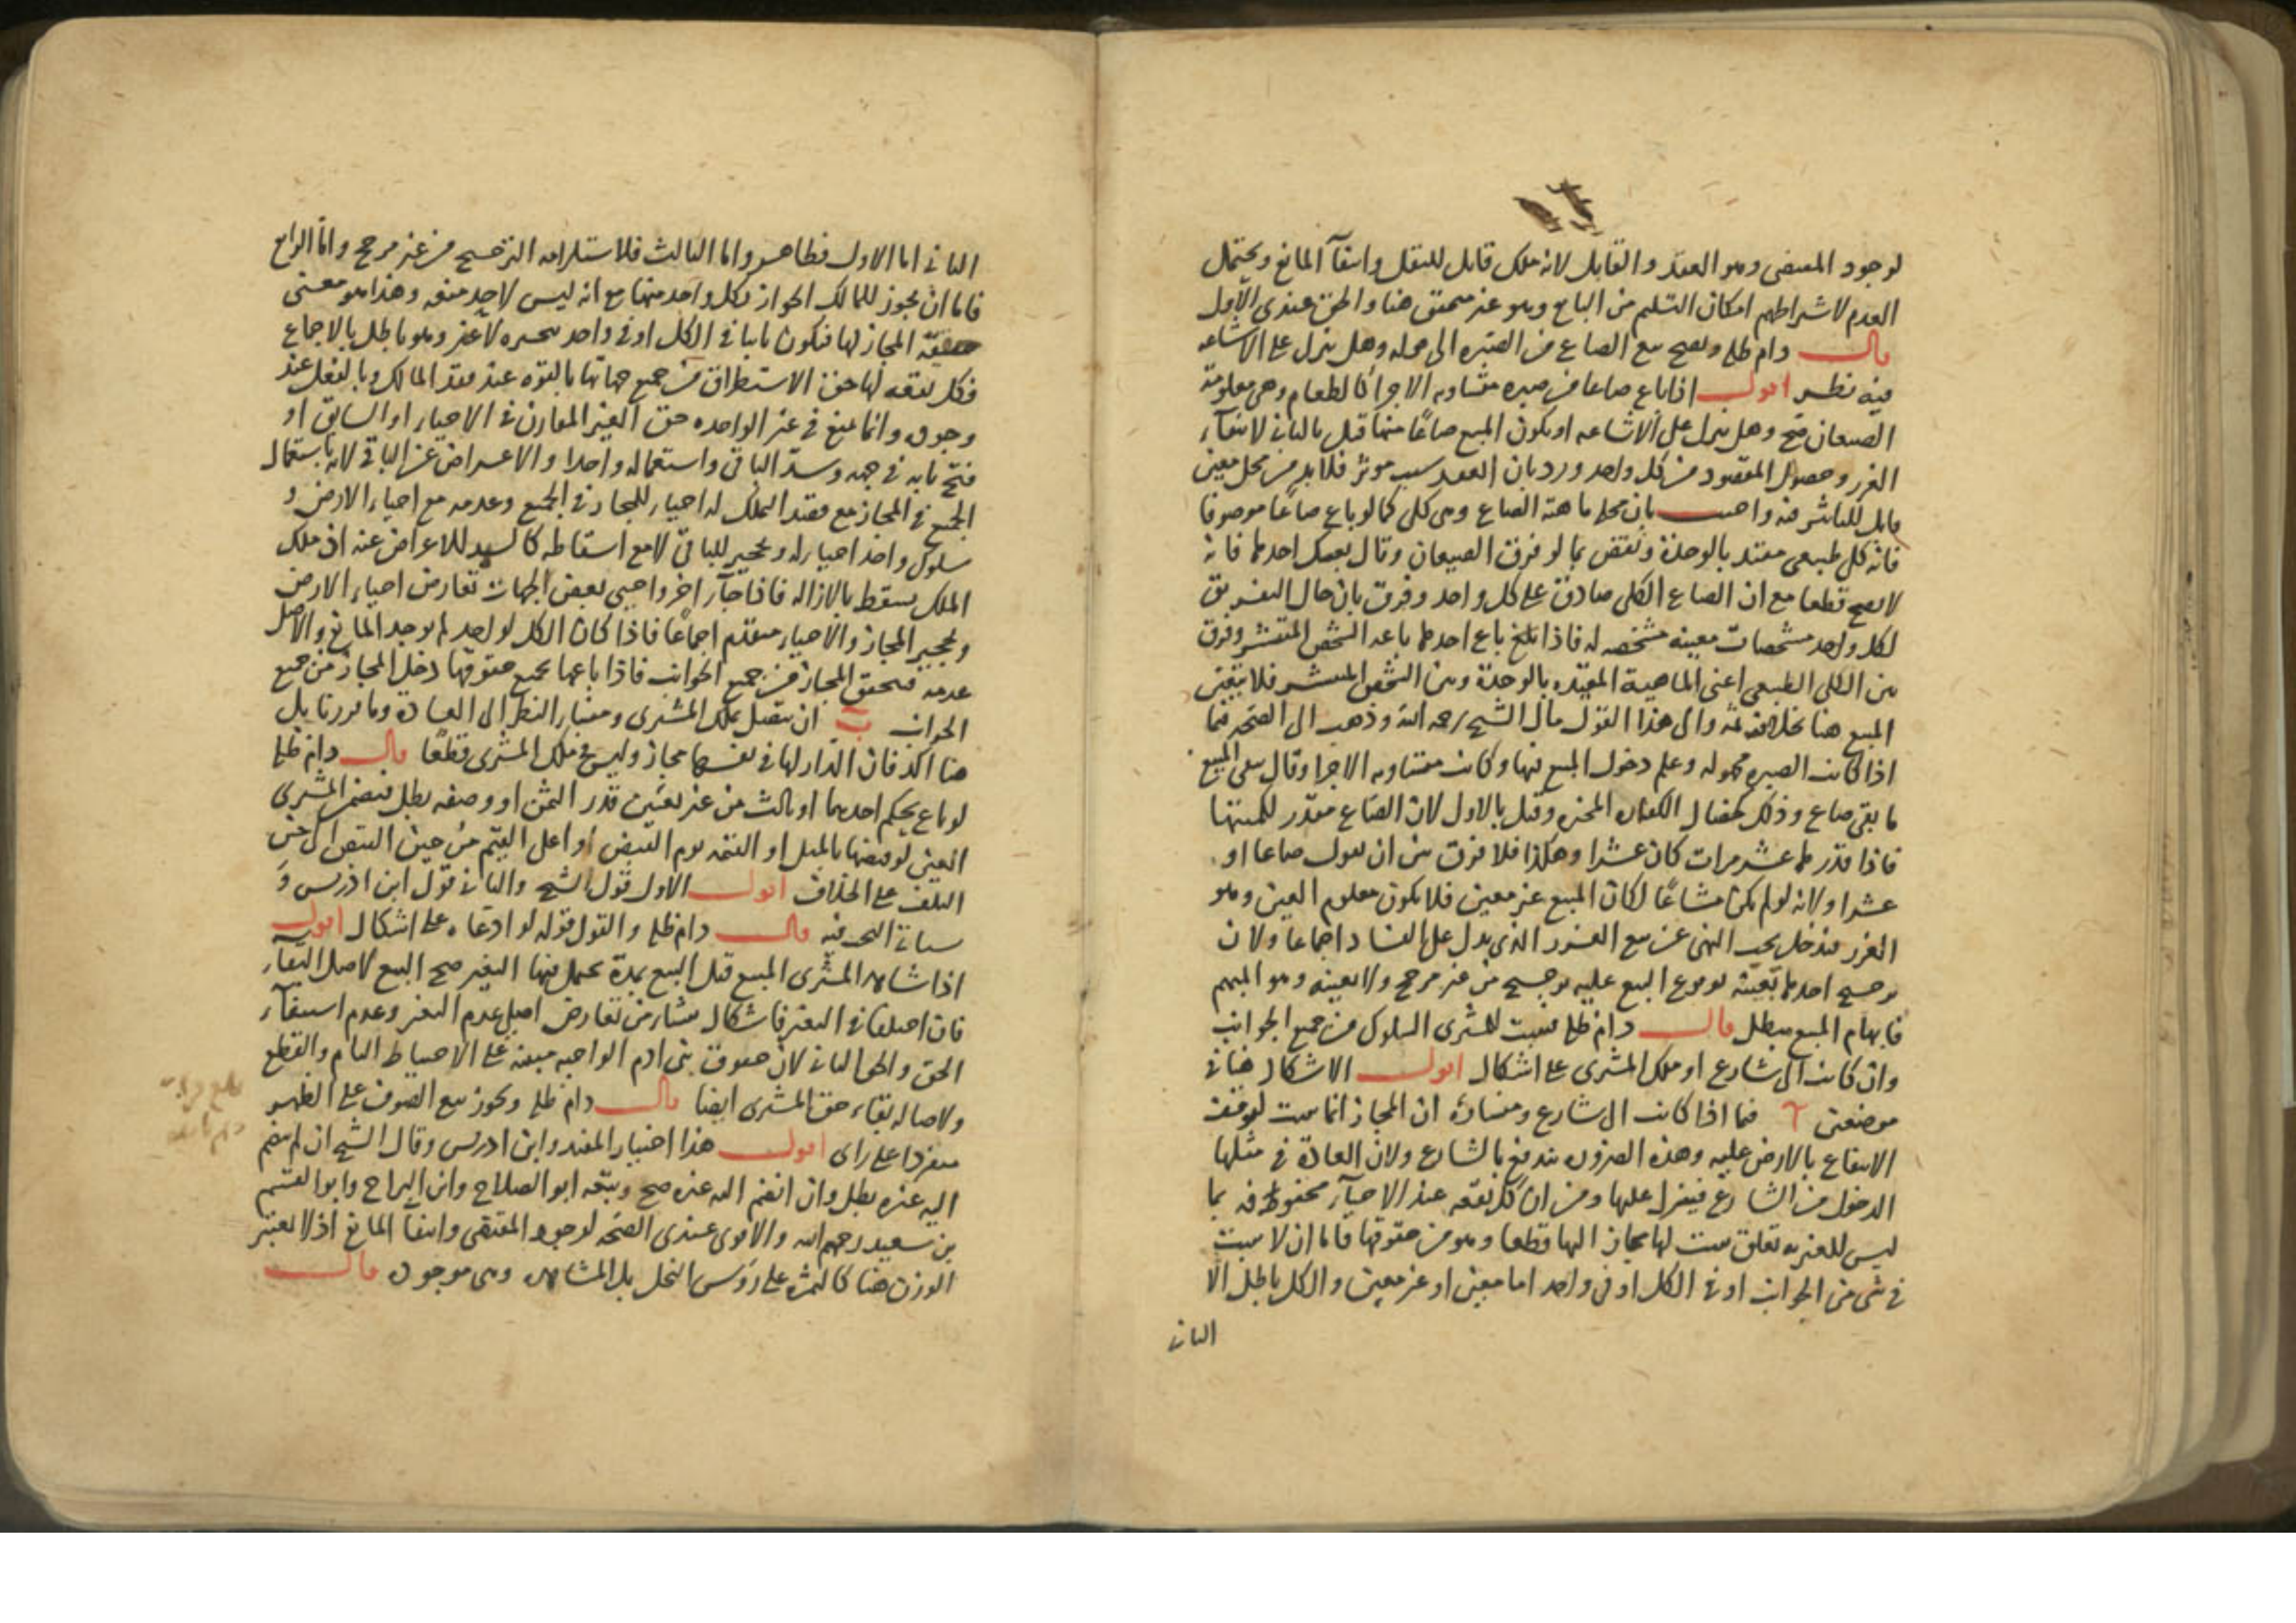 لوجود المقتضى وهو العقد والقابل لانه ملك قابل للنقل وانتفآ المانع ويحتمل
العدم لاشتراطهم امكان التسليم من البايع وهو غير متحقق هنا والحق عندى الأول
قال دام ظله ويصح بيع الصاع من الصبره الى مجمله وهل ينزل على الاشاعه
فيه نظر اقول اذا باع صاعا من صبره متساويه الاجزا كالطعام وهى معلومة
الصيعان صح وهل ينزل على الاشاعه او يكون المبيع صاعًا منها قيل بالثانى لانتفآء
الغرر وحصول المقصود من كل واحد ورد بان العقد سبب موثر فلا بد من محل معين
قابل للتاثير فيه واجيب بان محله ماهية الصاع وهى كلى كما لو باع صاعًا موصوفا
فانه كلى طبيعى مقيد بالوحدة ونقض بما لو فرق الصيعان وقال بعتك احدها فانه
لا يصح قطعا مع ان الصاع الكلى صادق على كل واحد وفرق بان حال التفريق
لكل واحد مشخصات معينه مشخصه له فاذا باع احدها باعه الشخص المنتشر وفرق
بين الكلى الطبيعى اعنى الماهية المقيده بالوحدة وبين الشخص المنتشر فلا يتعين
المبيع هنا بخلافه ثمة والى هذا القول مال الشيخ رحمه الله وذهب الى الصحه فيما
اذا كانت الصبره مجهوله وعلم دخول المبيع فيها وكانت متساويه الاجزا وقال يبقى المبيع
ما بقى صاع وذلك كخصال الكفاره المخيره وقيل بالاول لان الصاع مقدر لكميتها
فاذا قدرها عشر مرات كان عشرا وهكذا فلا فرق بين ان يقول صاعا او
عشرا ولانه لو لم يكن مشاعًا لكان المبيع غير معين فلا يكون معلوم العين وهو
الغرر فيدخل تحت النهى عن بيع الغرر الذى يدل على الفساد اجماعا ولان
ترجيح احدها بعينه بوقوع البيع عليه ترجيح من غير مرجح ولا بعينه وهو المبهم
فابهام المبيع مبطل قال دام ظله فيثبت للمشترى السلوك من جميع الجوانب
وان كانت الى شارع او ملك المشترى على اشكال اقول الاشكال هنا فى
موضعين ٱ فيما اذا كانت الى شارع ومنشاؤه ان المجاز انما يثبت لتوقف
الانتفاع بالارض عليه وهذه الضروره تندفع بالشارع ولان العادة فى مثلها
الدخول من الشارع فينزل عليها ومن ان كل بقعه عند الاحيآء محفوفه بما
ليس للغير به تعلق يثبت لها مجاز اليها قطعا وهو من حقوقها فاما ان لا يثبت
فى شى من الجوانب او فى الكل او فى واحد اما معين او غير معين والكل باطل الا
الثانى
الثانى اما الاول فظاهر واما الثالث فلاستلزامه الترجيح من غير مرجح واما الرابع
فاما ان يجوز للمالك الجواز بكل واحد منها مع انه ليس لاحد منعه وهذا هو معنى
حقيقة المجاز لها فيكون ثابتا فى الكل او فى واحد بتخييره لا غير وهو باطل بالاجماع
فكل بقعه لها حق الاستطراق من جميع جهاتها بالقوه عند فقد المالك وبالفعل عند
وجوده وانما يمنع فى غير الواحده حق الغير المقارن فى الاحياء او السابق او
فتح بابه فى جهه وسد الباقى واستعماله واحدا والاعراض عن الباقى لانه باستعمال
الجميع فى المجاز مع فقد الملك له احياء للمجاز فى الجميع وعدمه مع احياء الارض و
سلوك واحد احياء له وتحجير للباقى لا مع اسقاطه كالسيد للاعراض عنه اذ ملك
الملك يسقط بالازاله فاذا جآء اخر واحيى بعض الجهات تعارض احياء الارض
وتحجير المجاز والاحياء مقدم اجماعًا فاذا كان الكل لواحد لم يوجد المانع والاصل
عدمه فتحقق المجاز من جميع الجوانب فاذا باعها بجميع حقوقها دخل المجاز من جميع
الجوانب ب ان يتصل بملك المشترى ومنشاؤه النظر الى العادة وما قررنا بل
هنا اكد فان الدار لها فى نفسها مجاز وليس فى ملك المشترى قطعًا قال دام ظله
لو باع بحكم احدهما او ثالث من غير تعيين قدر الثمن او وصفه بطل فيضمن المشترى
العين لو قبضها بالمثل او القيمه يوم القبض او اعلى القيم من حين القبض الى حين
التلف على الخلاف اقول الاول قول الشيخ والثانى قول ابن ادريس و
سياتى البحث فيه قال دام ظله والقول قوله لو ادعاه على اشكال اقول
اذا شاهد المشترى المبيع قبل البيع بمدة يحتمل فيها التغير صح البيع لاصل البقاء
فان اختلفا فى التغير فاشكال منشاؤه من تعارض اصل عدم التغير وعدم استيفاء
الحق والحق الثانى لان حقوق بنى ادم الواجبه مبنيه على الاحتياط التام والقطع
ولاصاله بقاء حق المشترى ايضا قال دام ظله ويجوز بيع الصوف على الظهر
منفردا على راى اقول هذا اختيار المفيد وابن ادريس وقال الشيخ ان لم يضم
اليه غيره بطل وان انضم اليه غيره صح وتبعه ابو الصلاح وابن البراج وابو القسم
بن سعيد رحمهم الله والاقوى عندى الصحه لوجود المقتضى وانتفآ المانع اذ لا يعتبر
الوزن هنا كالثمره على رؤس النخل بل المشاهده وهى موجوده قال